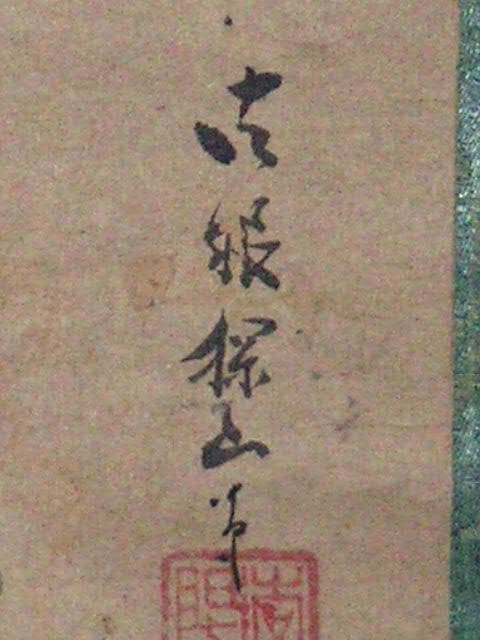 法眼探山筆